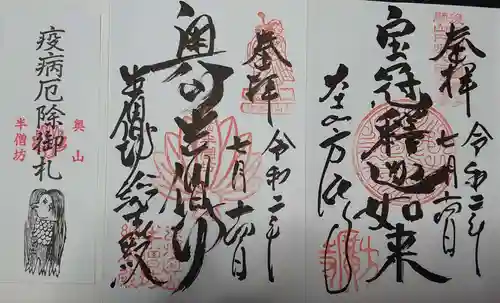 奉拝
宝冠釋迦如来
大本山方広寺
令和二年
七月十四日
奉拝
奥山半僧坊
半僧坊総本殿
令和二年
七月十四日
疫病厄除御札
奥山
半僧坊